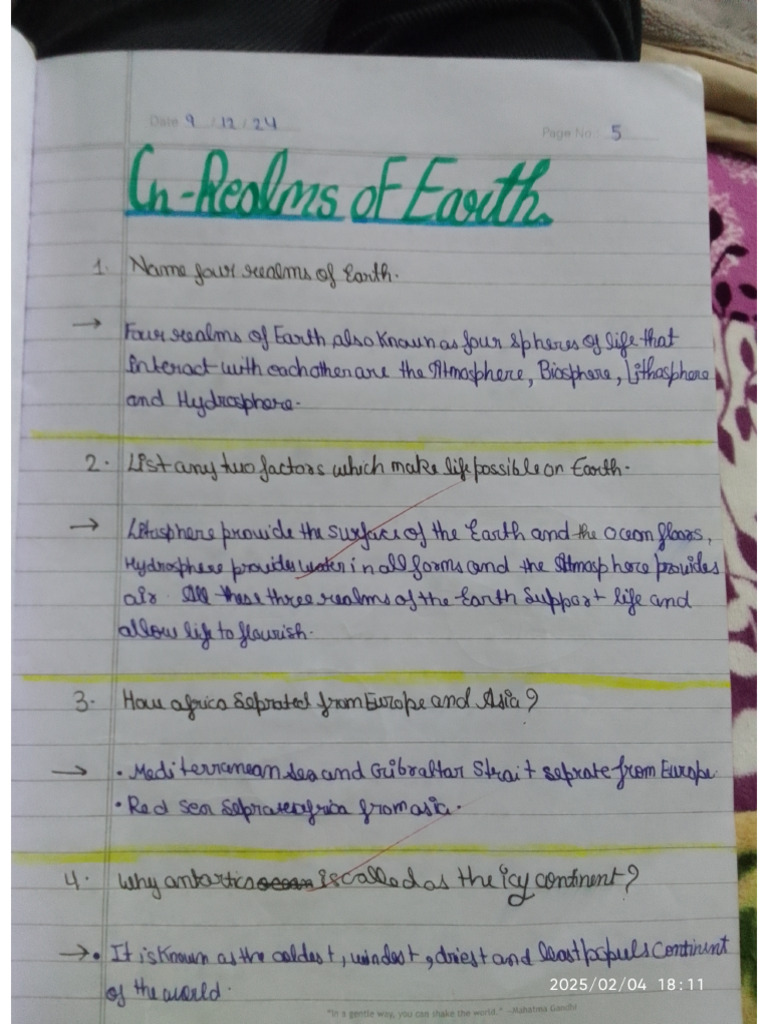 Date 9 / 12 / 24
Page No.: 5
Ch-Realms of Earth.
1. Name four realms of Earth.
→ Four realms of Earth also known as four spheres of life that
interact with each other are the Atmosphere, Biosphere, Lithosphere
and Hydrosphere.
2. List any two factors which make life possible on Earth.
→ Litosphere provide the surface of the Earth and the ocean floors,
Hydrosphere provides water in all forms and the Atmosphere provides
air. All these three realms of the Earth support life and
allow life to flourish.
3. How africa seprated from Europe and Asia?
→ • Mediterranean sea and Gribraltar Strait seprate from Europe.
• Red sea seprates africa from asia.
4. Why antartic is called as the icy continent?
→ • It is known as the coldest, windest, driest and least populs continint
of the world.
"In a gentle way, you can shake the world." -Mahatma Gandhi
2025/02/04 18:11